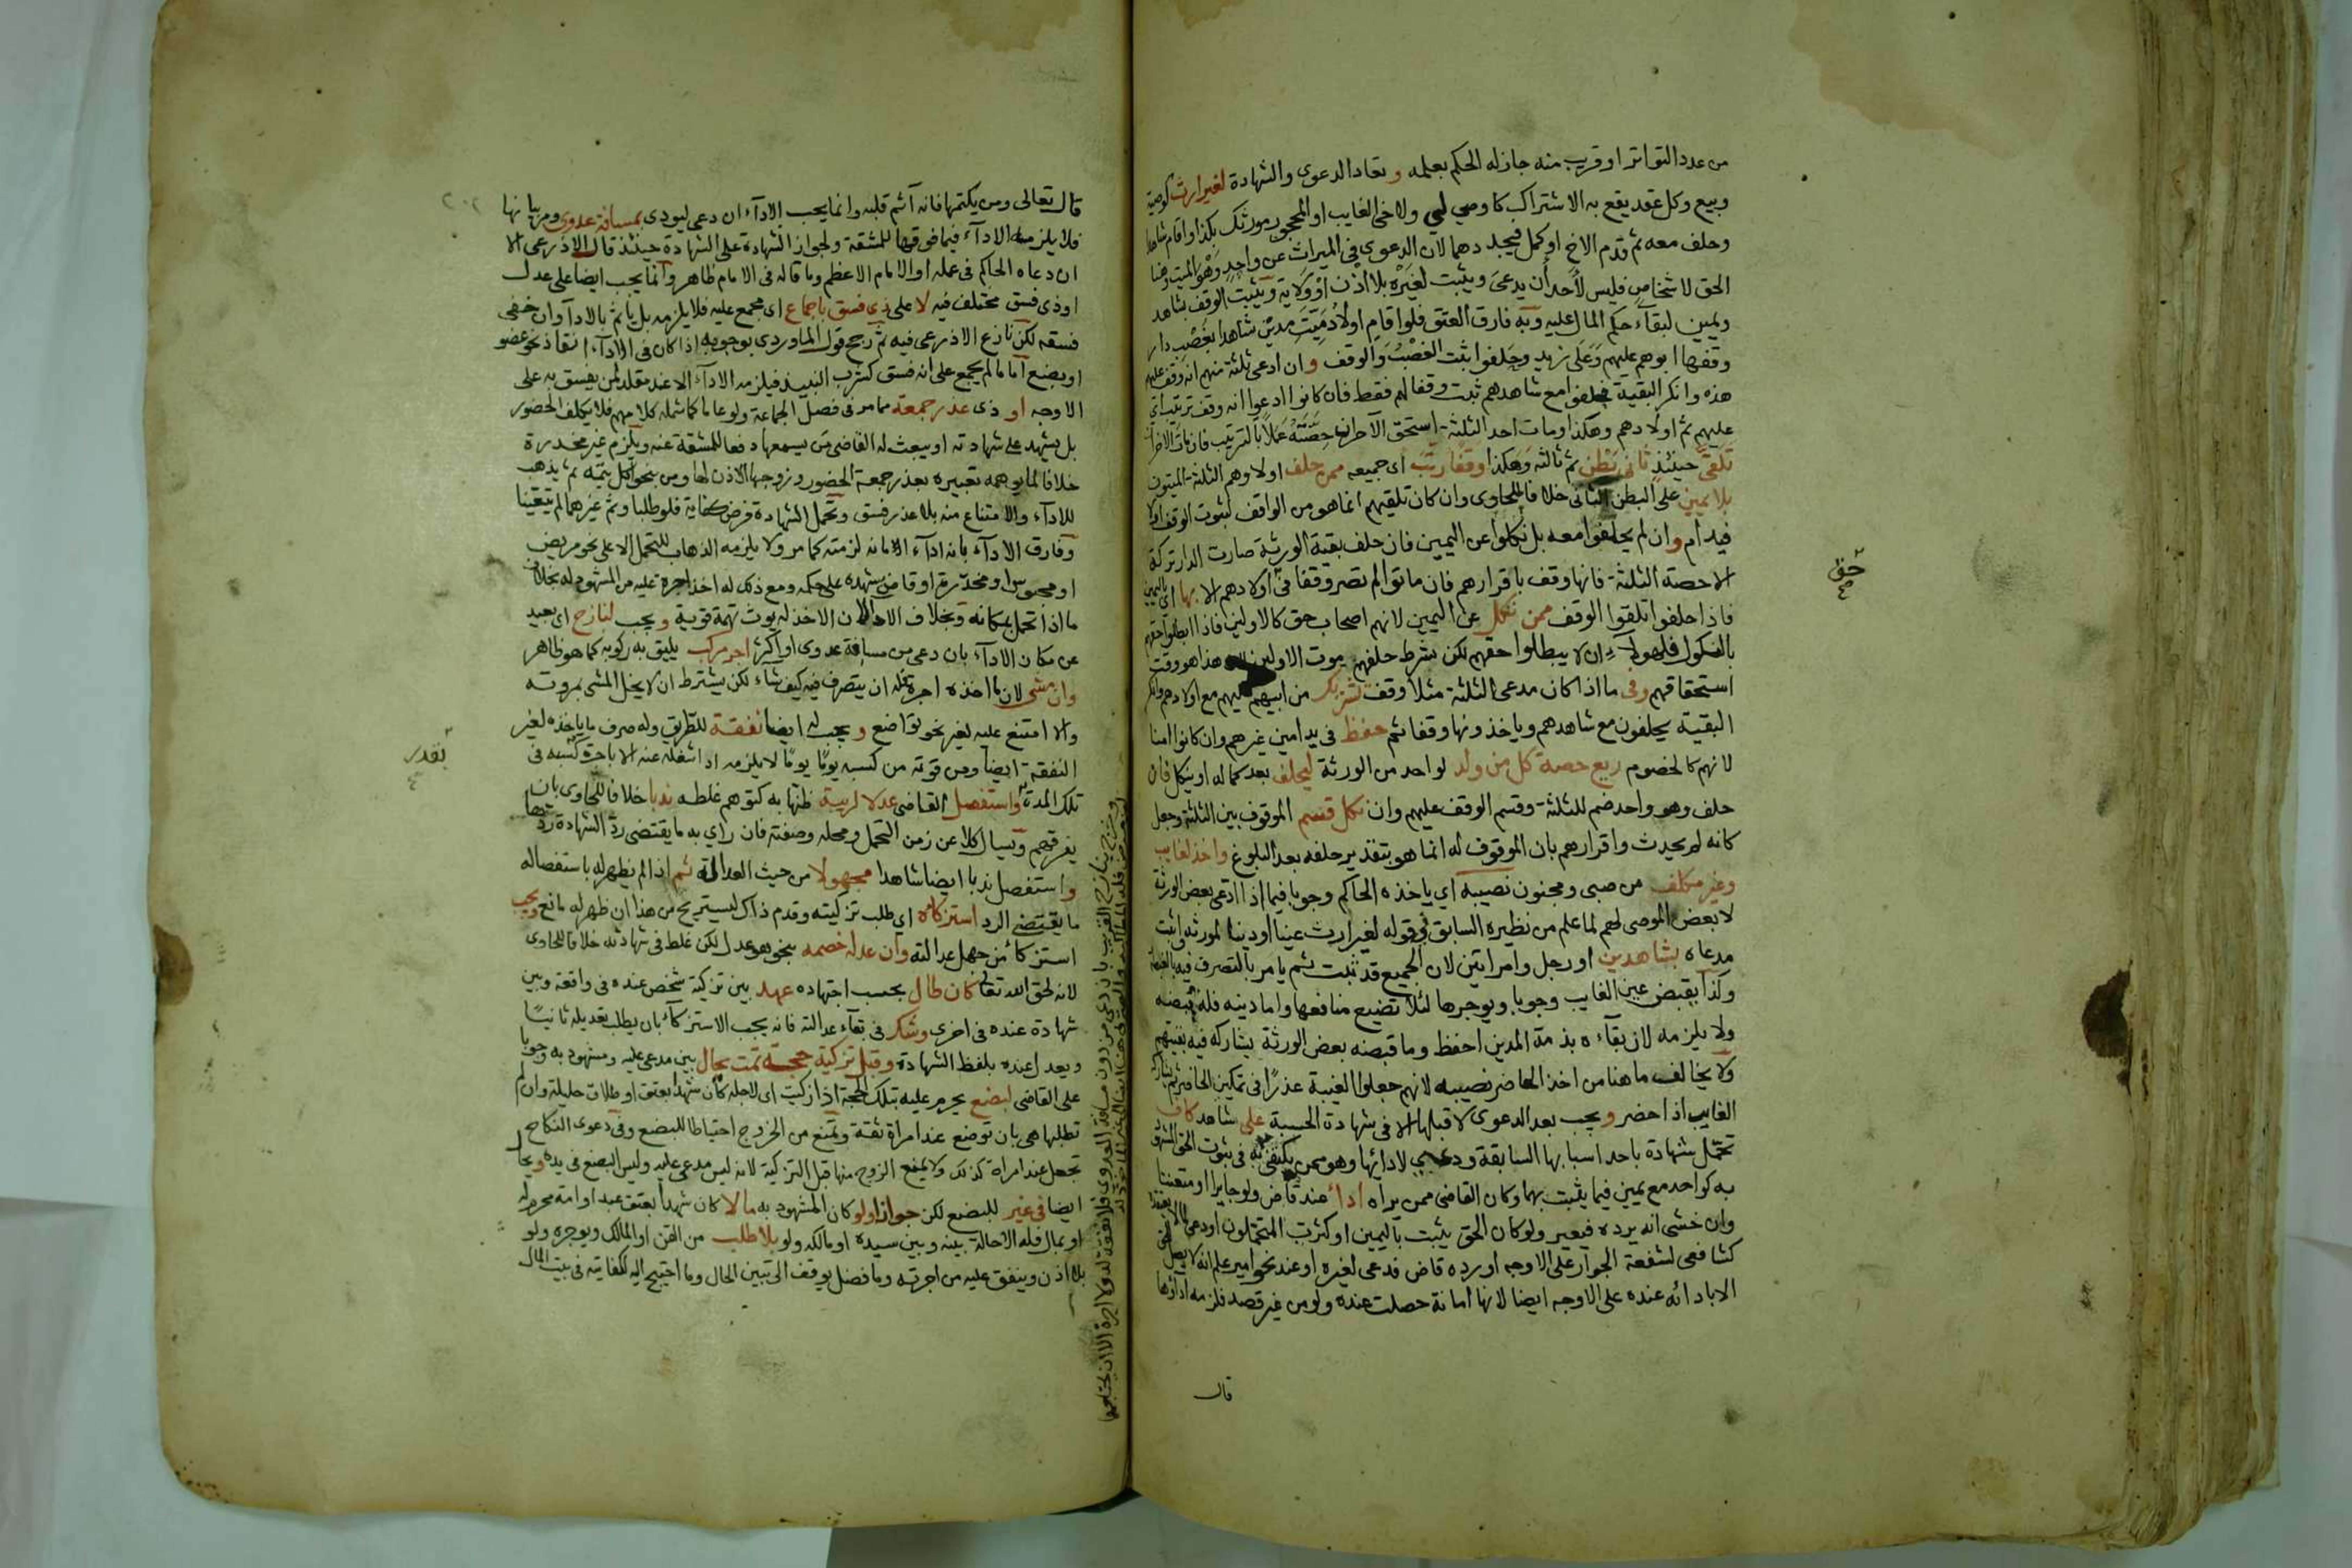 من عدد التواتر او قريب منه جاز له الحكم بعلمه وتعاد الدعوى والشهادة لغير ارث كوصية
وبيع وكل عقد يقع به الاشتراك كاوصي لي ولاخي الغايب او المحجور مورثك بكذا واقام شاهدا
وحلف معه ثم قدم الاخ او كمل فيجددهما لان الدعوى في الميراث عن واحد وهو الميت وهنا
الحق لاشخاص فليس لأحد أن يدعى ويثبت لغيره بلا اذن او ولاية ويثبت الوقف بشاهد
ويمين لبقآء حكم المال عليه وبه فارق العتق فلو اقام اولاد ميت مدين شاهدا بغصب دار
وقفها ابوهم عليهم وعلى زيد وحلفوا ثبت الغصب والوقف وان ادعى ثلثة منهم انه وقف عليهم
هذه وانكر البقية فحلفوا مع شاهدهم ثبت وقفا لهم فقط فان كانوا ادعوا انه وقف ترتيب اي
عليهم ثم اولادهم وهكذا ومات احد الثلثة استحق الآخران حصته عملا بالترتيب فان مات الاخران
تلقى حينئذ ثاني بطن ثم ثالثه وهكذا وقفا رتب اى جميعه ممن حلف اولا وهم الثلثة الميتون
بلا يمين على البطن الثانى خلافا للحاوى وان كان تلقيهم انما هو من الواقف لثبوت الوقف اولا
فيدام وان لم يحلفوا معه بل نكلوا عن اليمين فان حلف بقية الورثة صارت الدار تركة
الا حصة الثلثة فانها وقف باقرارهم فان ماتوا لم تصر وقفا في اولادهم الا بها اي اليمين
فاذا حلفوا تلقوا الوقف ممن نكل عن اليمين لانهم اصحاب حق كالاولين فاذا ابطلوا حقهم
بالنكول فلهولاء ان لا يبطلوا حقهم لكن بشرط حلفهم بموت الاولين هذا هو وقت
استحقاقهم وفى ما اذا كان مدعى الثلثة مثلا وقف تشريك من ابيهم عليهم مع اولادهم وانكر
البقية يحلفون مع شاهدهم وياخذونها وقفا ثم حفظ فى يد امين غيرهم وان كانوا امنا
لانهم كالخصوم ربع حصة كل من ولد لواحد من الورثة ليحلف بعد كماله او ينكل فان
حلف وهو واحد ضم للثلثة وقسم الوقف عليهم وان نكل قسم الموقوف بين الثلثة وجعل
كانه لم يحدث واقرارهم بان الموقوف له انما هو بتقدير حلفه بعد البلوغ واخذ لغايب
وغير مكلف من صبى ومجنون نصيبه اي ياخذه الحاكم وجوبا فيما اذا ادعى بعض الورثة
لا بعض الموصى لهم لما علم من نظيره السابق في قوله لغير ارث عينا او دينا لمورثه واثبت
مدعاه بشاهدين او رجل وامراتين لان الجميع قد ثبت ثم يامر بالتصرف فيه بالغبطة
وكذا يقبض عين الغايب وجوبا ويوجرها لئلا تضيع منافعها واما دينه فله قبضه
ولا يلزمه لان بقآءه بذمة المدين احفظ وما قبضه بعض الورثة يشاركه فيه بقيتهم
ولا يخالف ما هنا من اخذ الحاضر نصيبه لانهم جعلوا الغيبة عذرا فى تمكين الحاضر ثم يشاركه
الغايب اذا حضر ويجب بعد الدعوى لا قبلها الا فى شهادة الحسبة على شاهد كاف
تحمل شهادة باحد اسبابها السابقة ودعي لادائها وهو ممن يكتفى به فى ثبوت الحق المشهود
به كواحد مع يمين فيما يثبت بهما وكان القاضى ممن يراه اداء عند قاض ولو جايرا او متعنتا
وان خشى انه يرده فيعير ولو كان الحق يثبت باليمين او كثرت المتحملون او دعى لما لا يعتقده
كشافعى لشفعة الجوار على الاوجه او رده قاض فدعى لغيره او عند نحو امير علم انه لا يصل الحق
الا بادائه عنده على الاوجه ايضا لانها امانة حصلت عنده ولو من غير قصد فلزمه اداؤها
قال
حق
قال تعالى ومن يكتمها فانه آثم قلبه وانما يجب الادآء ان دعى ليودى بمسافة عدوى ومر بيانها
فلا يلزمه الادآء فيما فوقها للمشقة ولجواز الشهادة على الشهادة حينئذ قال الاذرعى الا
ان دعاه الحاكم فى عمله او الامام الاعظم وما قاله فى الامام ظاهر وانما يجب ايضا على عدل
او ذى فسق مختلف فيه لا على ذي فسق باجماع اى مجمع عليه فلا يلزمه بل ياثم بالادآ وان خفى
فسقه لكن نازع الاذرعى فيه ثم رجح قول الماوردى بوجوبه اذا كان فى الادآء انقاذ نحو عضو
او بضع اما ما لم يجمع على انه فسق كشرب النبيذ فيلزمه الادآء الا عند مقلد لمن يفسق به على
الاوجه او ذى عذر جمعة مما مر فى فصل الجماعة ولو عاما كما شمله كلامهم فلا يكلف الحضور
بل يشهد على شهادته او يبعث له القاضى من يسمعها دفعا للمشقة عنه ويلزم غير مخدرة
خلافا لما يوهمه تعبيره بعذر جمعة الحضور وزوجها الاذن لها ومن بنحو اكل يتمه ثم يذهب
للادآء والامتناع منه بلا عذر فسق وتحمل الشهادة فرض كفاية فلو طلبا وثم غيرهما لم يتعينا
وفارق الادآء بانه ادآء الامانه لزمته كما مر ولا يلزمه الذهاب للتحمل الا على نحو مريض
او محبوس او مخدرة او قاض يشهده على حكمه ومع ذلك له اخذ اجرة عليه من المشهود له بخلاف
ما اذا تحمل بمكانه وبخلاف الادا لان الاخذ له يورث تهمة قوية ويجب لنازح اى بعيد
عن مكان الادآء بان دعى من مسافة عدوى او اكثر اجر مركب يليق به ركوبه كما هو ظاهر
وان مشى لان ما اخذه اجرة فله ان يتصرف فيه كيف شاء لكن يشترط ان لا يخل المشى بمروته
والا امتنع عليه لغير نحو تواضع ويجب له ايضا نفقة للطريق وله صرف ما ياخذه لغير
النفقة ايضا ومن قوته من كسبه يوما يوما لا يلزمه اداشغله عنه الا باجرة كسبه فى
تلك المدة واستفصل القاضى عدلا لريبة ظنها به كتوهم غلطه ندبا خلافا للحاوى بان
يفرقهم ويسال كلا عن زمن التحمل ومحله وصفته فان راي به ما يقتضى رد الشهادة ردها
واستفصل ندبا ايضا شاهدا مجهولا من حيث العدالة ثم اذا لم يظهر له باستفصاله
ما يقتضي الرد استزكاه اي طلب تزكيته وقدم ذاك ليستريح من هذا ان ظهر له مانع ويجب
استزكا من جهل عدالته وان عدله خصمه بنحو هو عدل لكن غلط فى شهادته خلافا للحاوى
لانه لحق الله تعالى كان طال بحسب اجتهاده عهد بين تزكية شخص عنده فى واقعة وبين
شهادة عنده فى اخرى وشك فى بقآء عدالته فانه يجب الاستزكاء بان يطلب تعديله ثانيا
ويعدل عنده بلفظ الشهادة وقبل تزكية حجة تمت يحال بين مدعى عليه ومشهود به وجوبا
على القاضى لبضع يحرم عليه بتلك الحجة اذا زكيت اى لاجله كان شهدا بعتق او طلاق حليلة وان لم
تطلبها هى بان توضع عند امراة ثقة وتمنع من الخروج احتياطا للبضع وفى دعوى النكاح
تجعل عند امراة كذلك ولا يمنع الزوج منها قبل التزكية لانه ليس مدعى عليه وليس البضع فى يده ويحال
ايضا فى غير للبضع لكن جوازا ولو كان المشهود به مالا كان شهدا بعتق عبد او امة محرم له
او بمال فله الاحالة بينه وبين سيده او مالكه ولو بلا طلب من القن او المالك ويوجره ولو
بلا اذن وينفق عليه من اجرته وما فضل يوقف الى تبين الحال وما احتيج اليه لكفايته فى بيت المال
بقدر
وخرج بنازح القريب بان دعى من دون مسافة العدوى فلا نفقة له ولا اجرة الا ان يحتاجها